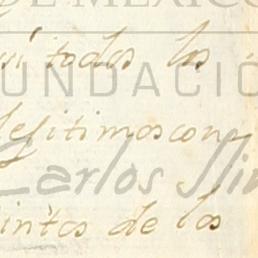 DE MÉXICO
así todos los
FUNDACIÓ
legitimos con
Carlos Slim
intos de los